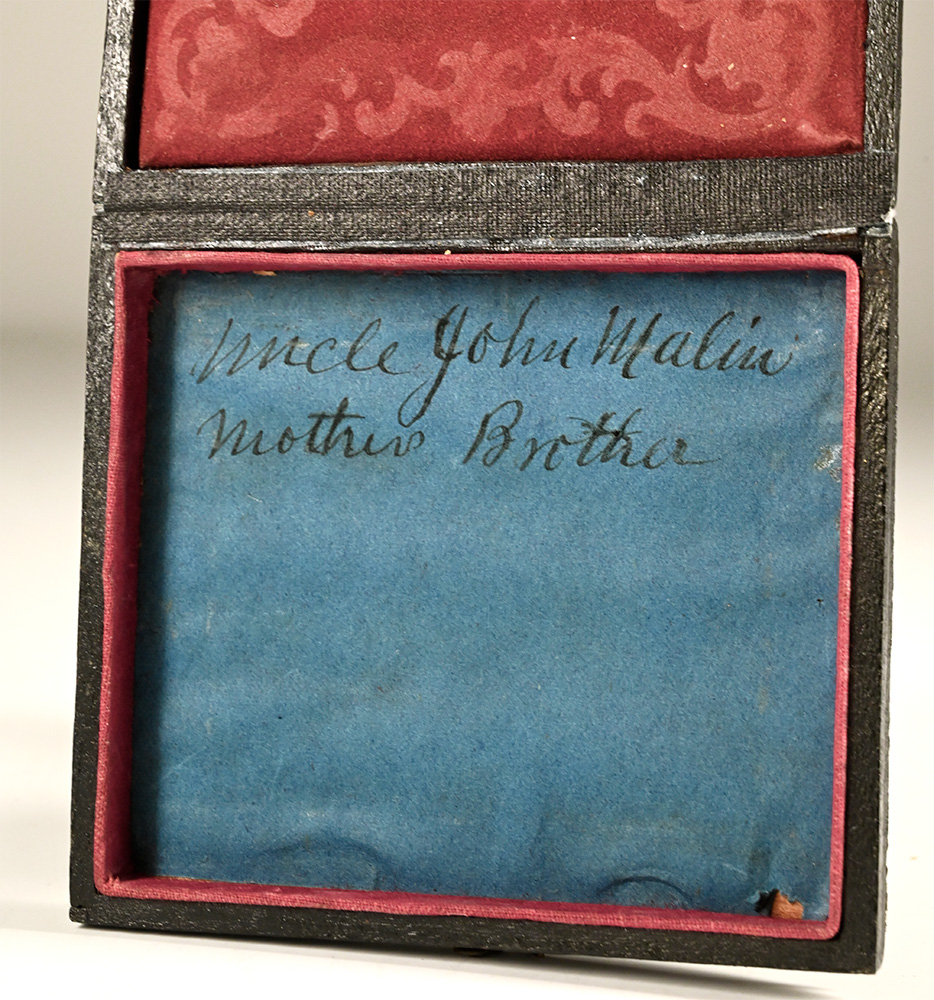 Uncle John Malin
Mothers Brother